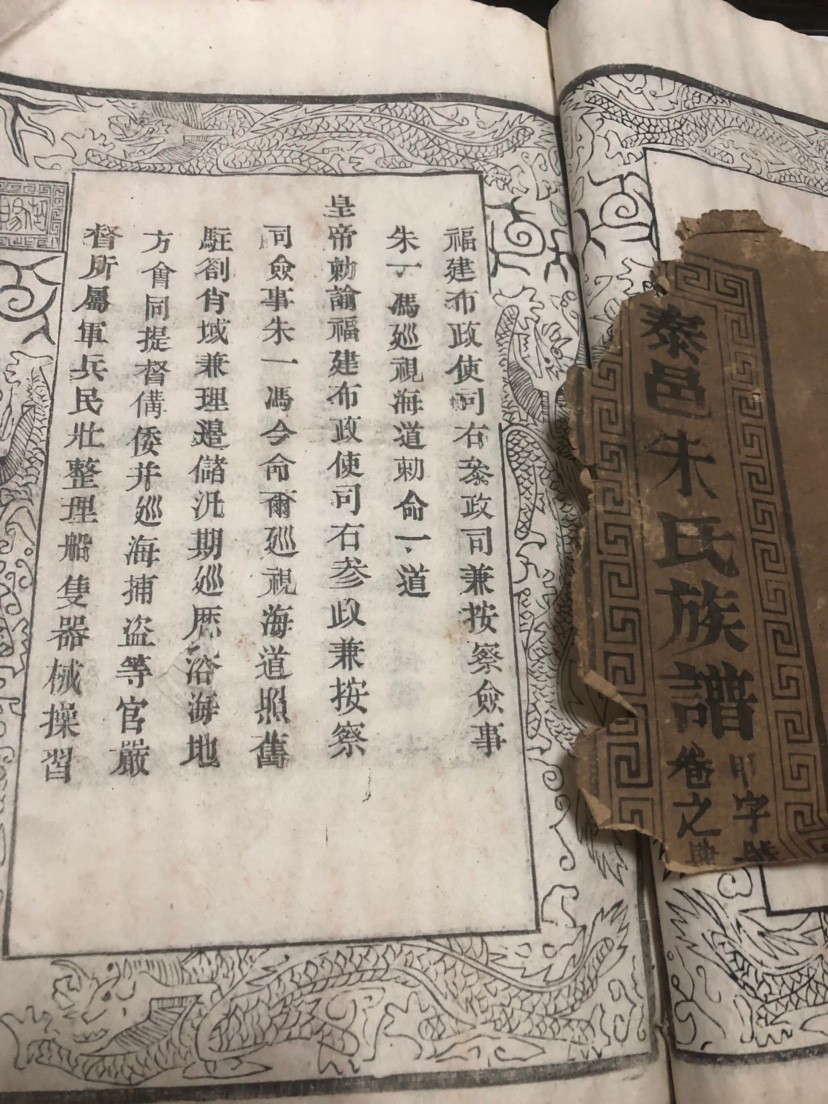 泰邑朱氏族譜
卷之
字
福建布政使司右叅政司兼按察僉事
朱一馮廵視海道勅命一道
皇帝勅諭福建布政使司右叅政兼按察
司僉事朱一馮今命爾廵視海道照舊
駐劄省域兼理糧儲汛期廵歷沿海地
方會同提督備倭并廵海捕盜等官嚴
督所屬軍兵民壯整理船隻器械操習